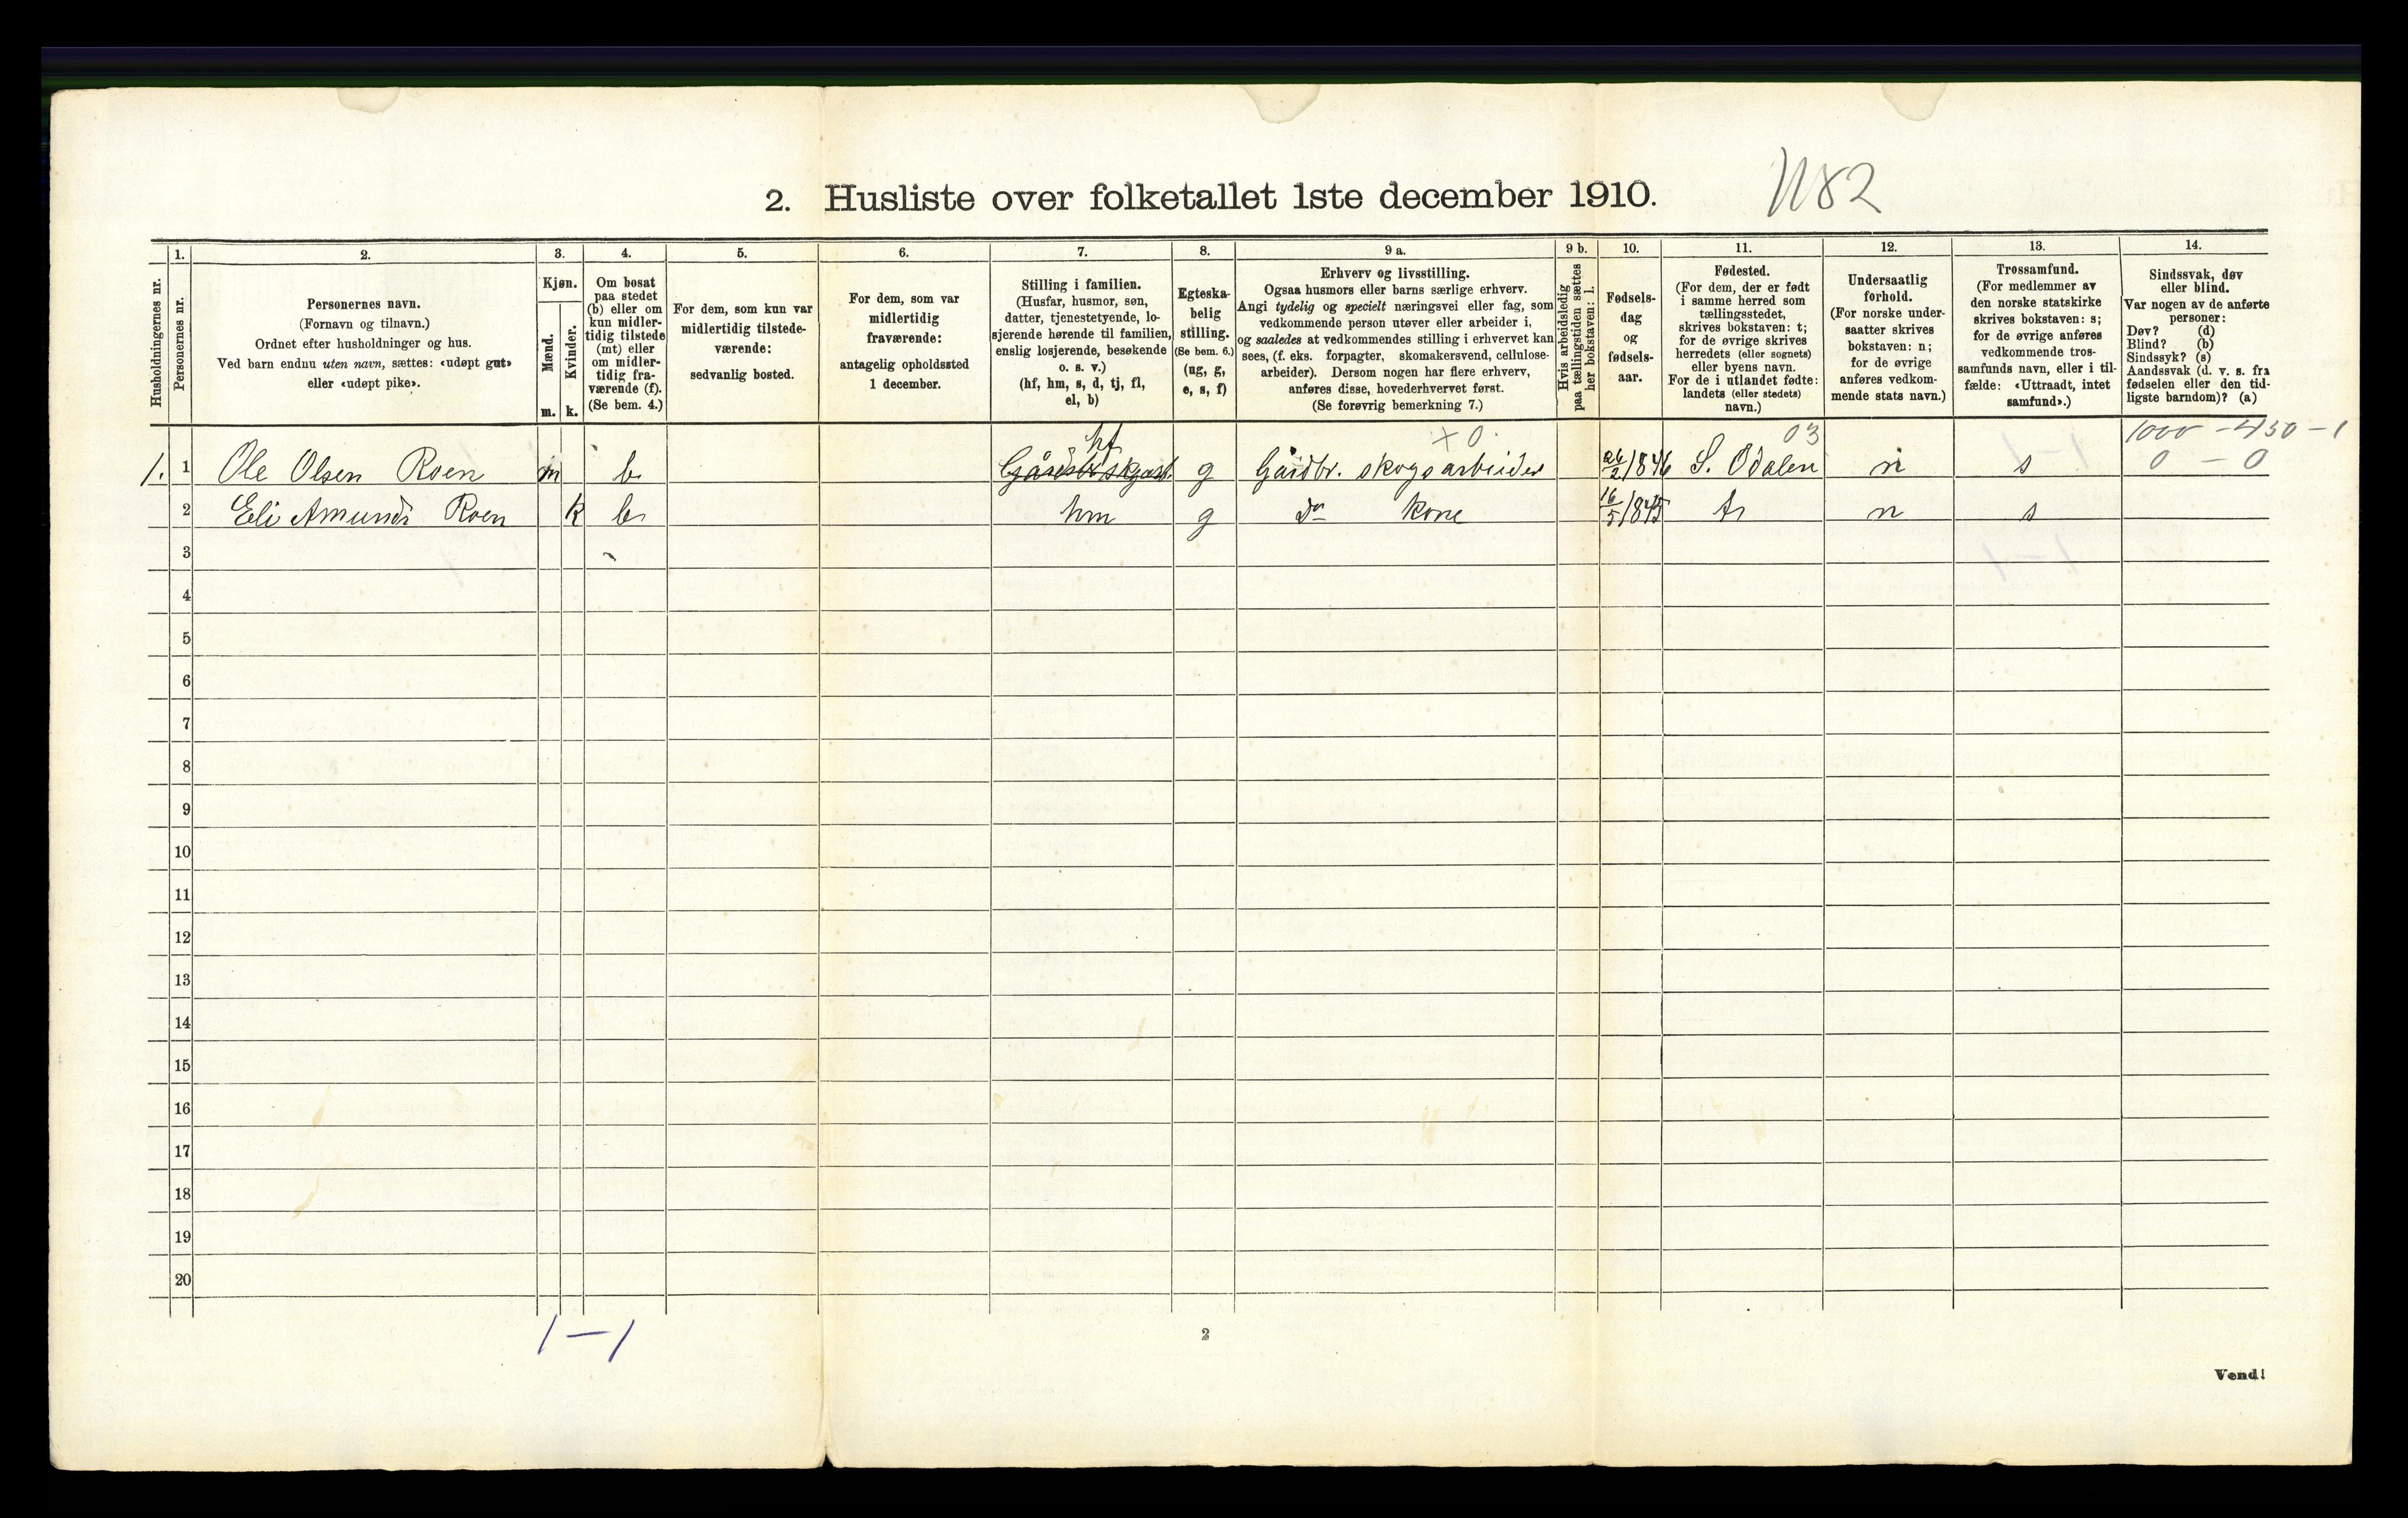 2. Husliste over folketallet 1ste december 1910.
1. 2. 3. 4. 5. 6. 7. 8. 9 a. 9 b. 10. 11. 12. 13. 14.
Husholdningernes nr.
Personernes nr.
Personernes navn.
(Fornavn og tilnavn.)
Ordnet efter husholdninger og hus.
Ved barn endnu uten navn, sættes: «udøpt gut»
eller «udøpt pike».
Kjøn.
Mænd.
Kvinder.
m. k.
Om bosat
paa stedet
(b) eller om
kun midler-
tidig tilstede
(mt) eller
om midler-
tidig fra-
værende (f).
(Se bem. 4.)
For dem, som kun var
midlertidig tilstede-
værende:
sedvanlig bosted.
For dem, som var
midlertidig
fraværende:
antagelig opholdssted
1 december.
Stilling i familien.
(Husfar, husmor, søn,
datter, tjenestetyende, lo-
sjerende hørende til familien,
enslig losjerende, besøkende
o. s. v.)
(hf, hm, s, d, tj, fl,
el, b)
Egteska-
belig
stilling.
(Se bem. 6.)
(ug, g,
e, s, f)
Erhverv og livsstilling.
Ogsaa husmors eller barns særlige erhverv.
Angi tydelig og specielt næringsvei eller fag, som
vedkommende person utøver eller arbeider i,
og saaledes at vedkommendes stilling i erhvervet kan
sees, (f. eks. forpagter, skomakersvend, cellulose-
arbeider). Dersom nogen har flere erhverv,
anføres disse, hovederhvervet først.
(Se forøvrig bemerkning 7.)
Hvis arbeidsledig
paa tællingstiden sættes
her bokstaven: l.
Fødsels-
dag
og
fødsels-
aar.
Fødested.
(For dem, der er født
i samme herred som
tællingsstedet,
skrives bokstaven: t;
for de øvrige skrives
herredets (eller sognets)
eller byens navn.
For de i utlandet fødte:
landets (eller stedets)
navn.)
Undersaatlig
forhold.
(For norske under-
saatter skrives
bokstaven: n;
for de øvrige
anføres vedkom-
mende stats navn.)
Trossamfund.
(For medlemmer av
den norske statskirke
skrives bokstaven: s;
for de øvrige anføres
vedkommende tros-
samfunds navn, eller i til-
fælde: «Uttraadt, intet
samfund».)
Sindssvak, døv
eller blind.
Var nogen av de anførte
personer:
Døv? (d)
Blind? (b)
Sindssyk? (s)
Aandssvak (d. v. s. fra
fødselen eller den tid-
ligste barndom)? (a)
hf + 0 03 1000 - 450 - 1
1. 1 Ole Olsen Roen m b g Gårdbr. skogsarbeider 26/2 1846 S. Odalen n s 0 - 0
2 Eli Amunds Roen k b hm g do kone 16/5 1845 t n s
3
4
5
6
7
8
9
10
11
12
13
14
15
16
17
18
19
20
1 - 1
2
Vend!